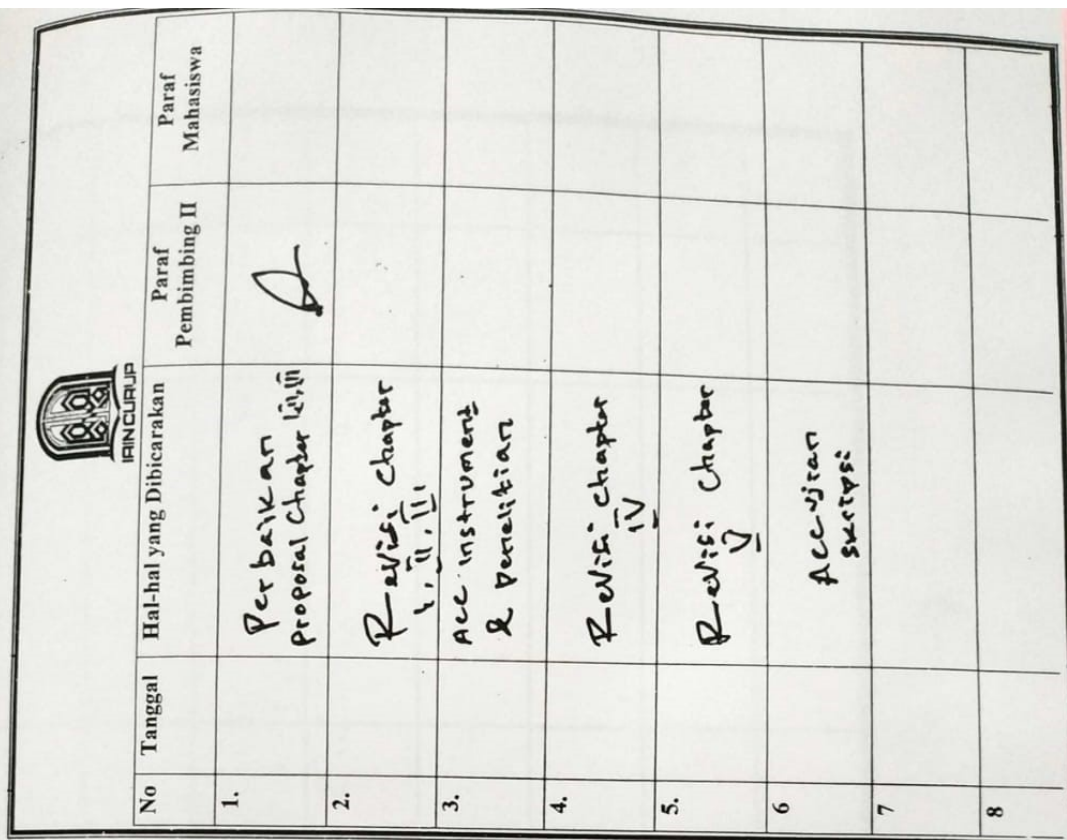 IAIN CURUP
No Tanggal Hal-hal yang Dibicarakan Paraf Pembimbing II Paraf Mahasiswa
1. Perbaikan
proposal Chapter I, II, III
2. Revisi Chapter
I, II, III
3. Acc instrument
& penelitian
4. Revisi chapter
IV
5. Revisi chapter
V
6 Acc ujian
skripsi
7
8